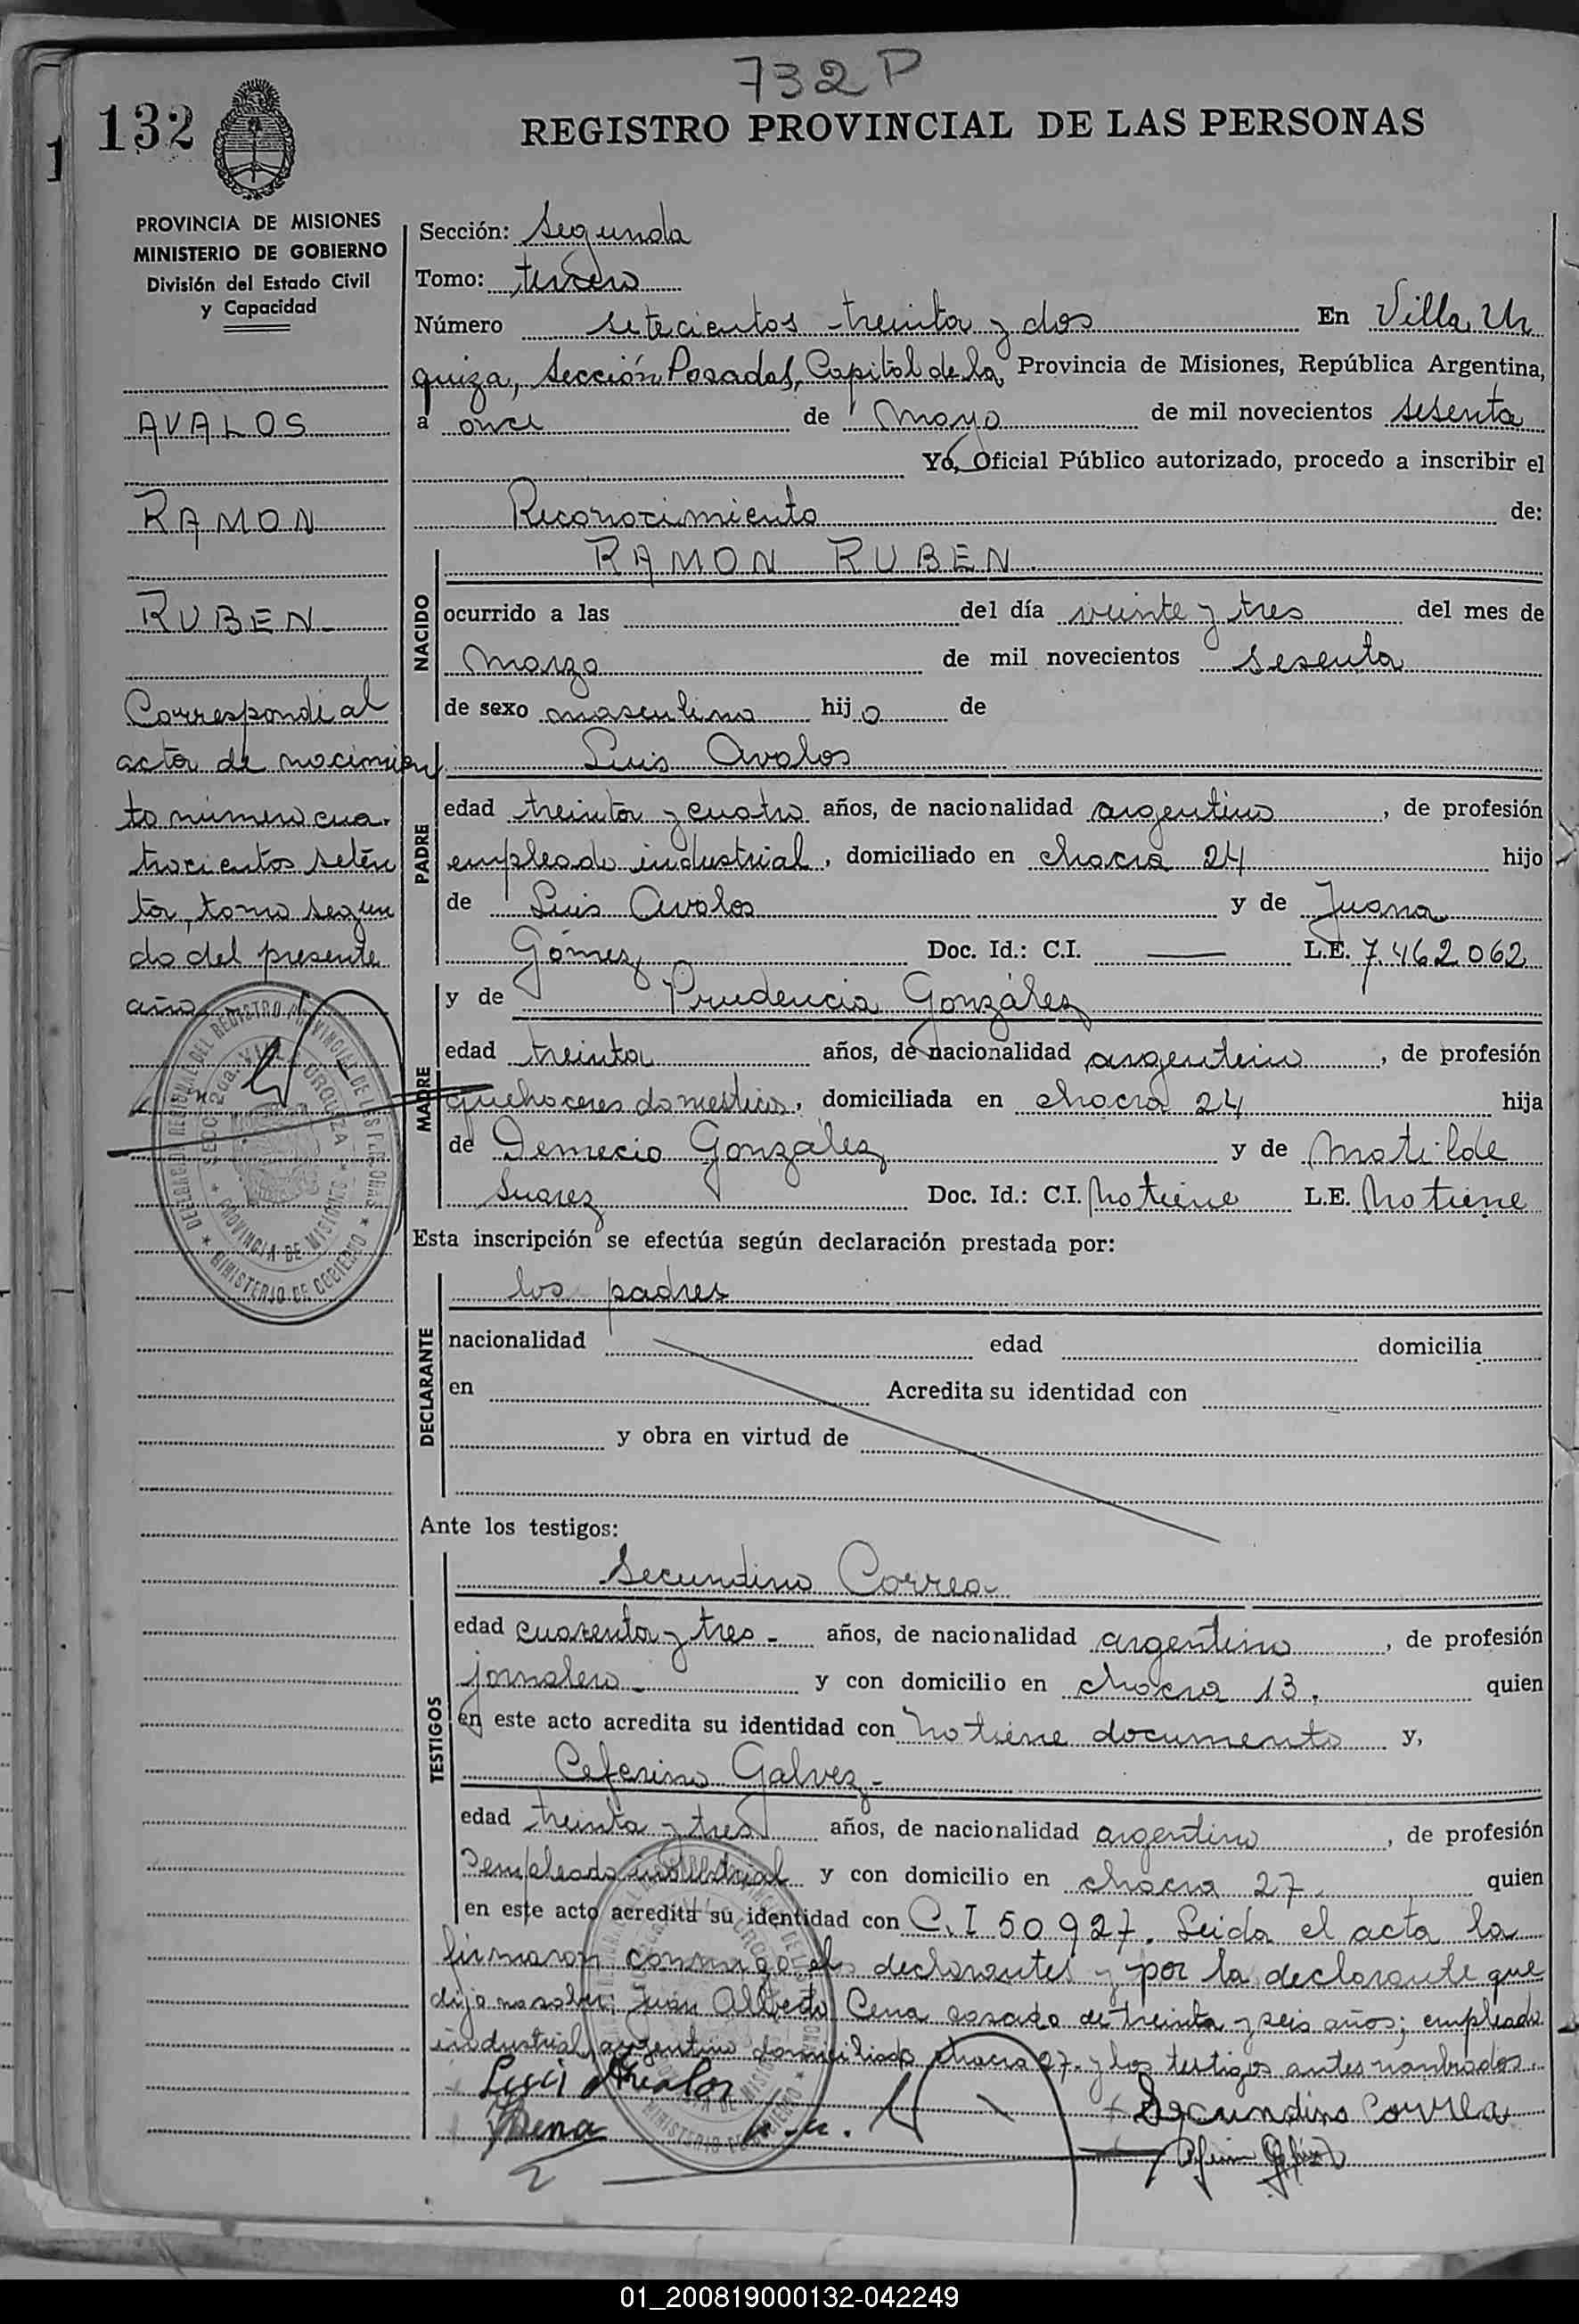 732 P
132
REGISTRO PROVINCIAL DE LAS PERSONAS
PROVINCIA DE MISIONES
MINISTERIO DE GOBIERNO
División del Estado Civil
y Capacidad
AVALOS
RAMON
RUBEN
Correspondi al
acta de nacimien
to número cua-
trocientos seten
ta, tomo segun
do del presente
año
DEL REGISTRO PROVINCIAL DE LAS PERSONAS
SECC. 2da. VILLA URQUIZA
PROVINCIA DE MISIONES
MINISTERIO DE GOBIERNO
Sección: Segunda
Tomo: tercero
Número setecientos treinta y dos En Villa Ur
quiza, Sección Posadas, Capital de la Provincia de Misiones, República Argentina,
a once de Mayo de mil novecientos sesenta
Yo, Oficial Público autorizado, procedo a inscribir el
Reconocimiento de:
NACIDO
RAMON RUBEN
ocurrido a las del día veinte y tres del mes de
Marzo de mil novecientos sesenta
de sexo masculino hijo de
PADRE
Luis Avalos
edad treinta y cuatro años, de nacionalidad argentino, de profesión
empleado industrial, domiciliado en chacra 24 hijo
de Luis Avalos y de Juana
Gómez Doc. Id.: C.I. —— L.E. 7.462.062
MADRE
y de Prudencia González
edad treinta años, de nacionalidad argentino, de profesión
quehaceres domesticos, domiciliada en chacra 24 hija
de Demecio González y de Matilde
Suarez Doc. Id.: C.I. No tiene L.E. No tiene
Esta inscripción se efectúa según declaración prestada por:
DECLARANTE
los padres
nacionalidad edad domicilia
en Acredita su identidad con
y obra en virtud de
Ante los testigos:
TESTIGOS
Secundino Correa
edad cuarenta y tres - años, de nacionalidad argentino, de profesión
jornalero - y con domicilio en chacra 13. quien
en este acto acredita su identidad con No tiene documento y,
Ceferino Galvez -
edad treinta y tres años, de nacionalidad argentino, de profesión
empleado industrial y con domicilio en chacra 27 quien
en este acto acredita su identidad con C.I 50927. Leida el acta la
firmaron conmigo los declarantes y por la declarante que
dijo no saber; Juan Alberto Cena casado de treinta y seis años; empleado
industrial, argentino domiciliado chacra 27. y los testigos antes nombrados.
Luis Avalos
Secundino Correa
Cena
01_200819000132-042249